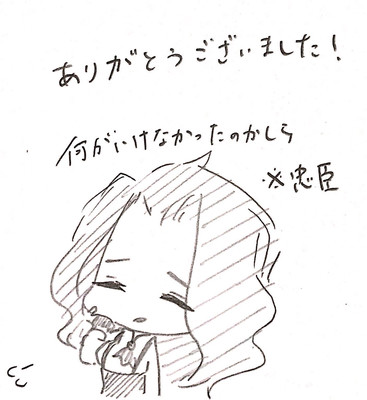 ありがとうございました！
何がいけなかったのかしら
※忠臣